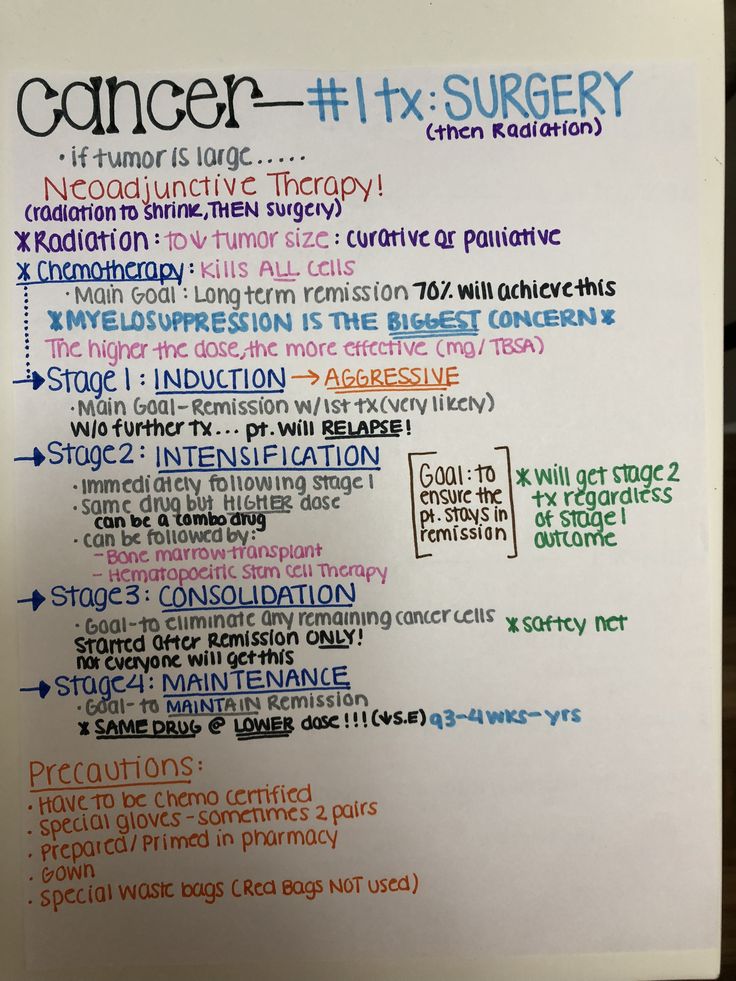 cancer—#1 tx: SURGERY
(then Radiation)
• if tumor is large.....
Neoadjunctive Therapy!
(radiation to shrink, THEN surgery)
*Radiation: to ↓ tumor size: curative or palliative
* Chemotherapy: kills ALL cells
• Main Goal: Long term remission 70% will achieve this
*MYELOSUPPRESSION IS THE BIGGEST CONCERN*
The higher the dose, the more effective (mg/TBSA)
→ Stage 1: INDUCTION → AGGRESSIVE
• Main Goal-Remission w/1st tx (very likely)
w/o further tx... pt. will RELAPSE!
→ Stage 2: INTENSIFICATION
• Immediately following stage 1
• Same drug but HIGHER dose
can be a combo drug
• can be followed by:
- Bone marrow transplant
- Hematopoeitic Stem Cell Therapy
[Goal: to
ensure the
pt. stays in
remission]
* will get stage 2
tx regardless
of stage 1
outcome
→ Stage 3: CONSOLIDATION
• Goal-to eliminate any remaining cancer cells
* saftey net
Started After Remission ONLY!
not everyone will get this
→ Stage 4: MAINTENANCE
• Goal- to MAINTAIN Remission
* SAME DRUG @ LOWER dose!!! (↓S.E) q3-4wks-yrs
Precautions:
• Have to be chemo certified
• special gloves - sometimes 2 pairs
• Prepared/Primed in pharmacy
• Gown
• special waste bags (Red Bags NOT used)